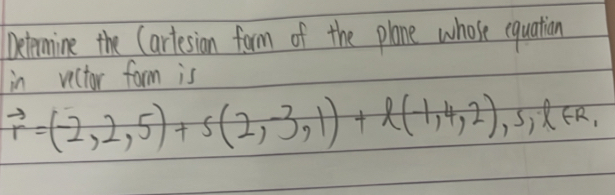 Determine the Cartesian form of the plane whose equation
in vector form is
r⃗ = (-2,2,5) + s(2,-3,1) + l(-1,4,2), s, l ∈ R.